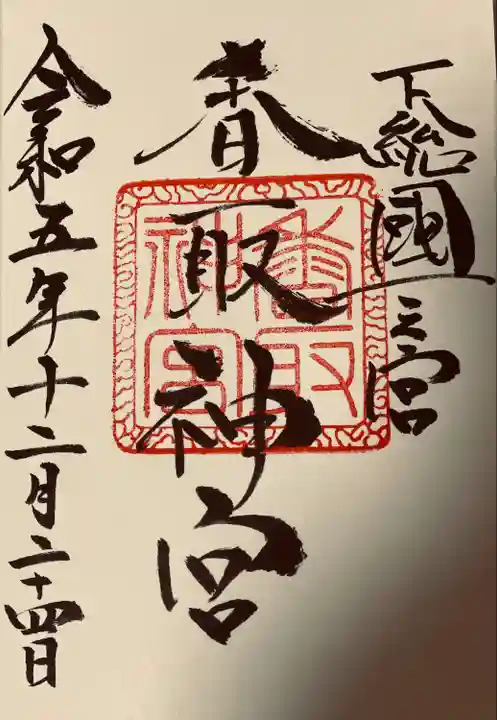 下総國一之宮
香取神宮
香取
神宮
令和五年十二月二十四日